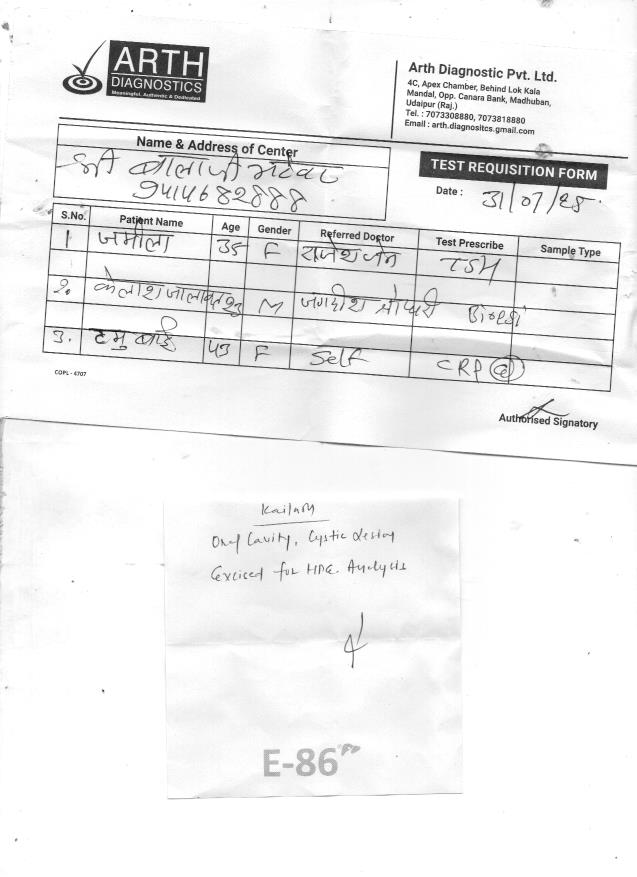 ARTH
DIAGNOSTICS
Meaningful, Authentic & Dedicated
Arth Diagnostic Pvt. Ltd.
4C, Apex Chamber, Behind Lok Kala
Mandal, Opp. Canara Bank, Madhuban,
Udaipur (Raj.)
Tel. : 7073308880, 7073818880
Email : arth.diagnositcs.gmail.com
Name & Address of Center
श्री बालाजी
9414682888
TEST REQUISITION FORM
Date : 31/07/25
S.No. Patient Name Age Gender Referred Doctor Test Prescribe Sample Type
1 जमीला 35 F राजेश जैन TSH
2. कैलाश M जगदीश
3. टमु बाई 43 F Self CRP
COPL - 4707
Authorised Signatory
Kailash
Oral Cavity, Cystic lesion
Excised for HPE Analysis
E-86